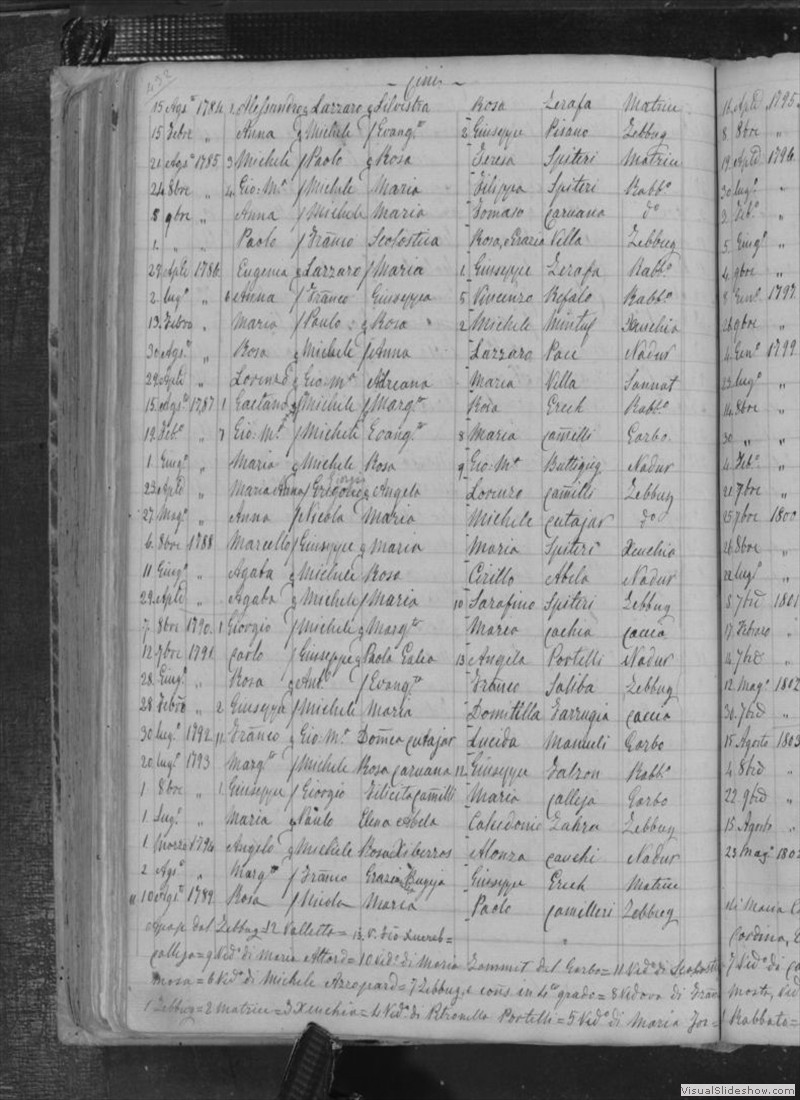 492
— Gini —
15 Agsto 1784 1 Alessandro g Lazzaro g Silvestra Rosa Zerafa Matrice
15 Febre „ Anna g Michele f Evangta 2 Giuseppe Pisano Zebbug
21 Agsto 1785 3 Michele f Paolo g Rosa Teresa Spiteri Matrice
24 8bre „ 4 Gio: Ma f Michele Maria Filippa Spiteri Rabbo
8 9bre „ Anna f Michele Maria Tomaso Caruana do
1. „ „ Paolo f Franco Scolastica Rosa, e Grazia Villa Zebbug
29 Aple 1786 Eugenia g Lazzaro f Maria 1 Giuseppe Zerafa Rabbo
2 lugo „ 6 Anna f Franco Giuseppa 5 Vincenzo Refalo Rabbo
13 Febro „ Maria f Paulo g Rosa 2 Michele Mintuf Xeuchia
30 Agso „ Rosa g Michele f Anna Lazzaro Pace Nadur
29 Aple „ Lorenzo g Gio: Ma Adreana Maria Villa Sannat
15 Agsto 1787 1 Gaetano g Michele f Margta Rosa Grech Rabbo
19 Febo „ 7 Gio: Ma f Michele Evangta 8 Maria Camilli Garbo
1 Giugo „ Maria g Michele Rosa 9 Gio: Ma Buttigieg Nadur
23 Aple „ Maria Anna f Gregorio Giorgio g Angela Lorenzo Camilli Zebbug
27 Mago „ Anna f Nicola Maria Michele Cutajar do
6 8bre 1788 Marcello f Giuseppe g Maria Maria Spiteri Xeuchia
11 Giugo „ Agata g Michele Rosa Cirillo Abela Nadur
29 Aple „ Agata g Michele f Maria 10 Sarafino Spiteri Zebbug
7 8bre 1790 1 Giorgio f Michele g Margta Marco Cachia Caccia
12 9bre 1791 Carlo f Giuseppe g Paola Galea 13 Angela Portelli Nadur
28 Giugo „ Rosa g Anto f Evangta Franco Saliba Zebbug
28 Febro „ 2 Giuseppa f Michele Maria Domitilla Farrugia Caccia
30 lugo 1792 11 Franco g Gio: Ma Domca Cutajar Lucida Manueli Garbo
20 lugo 1793 Margta f Michele Rosa Caruana 12 Giuseppe Falzon Rabbo
1 8bre „ 1 Giuseppe f Giorgio Felicita Camilli Maria Calleja Garbo
1 Lugo „ Maria g Paulo Elena Abela Calcedonio Zahra Zebbug
1 Marzo 1794 Angelo g Michele Rosa Xiberras Alonza Cauchi Nadur
2 Agso „ Margta f Franco Grazia Bugeja Giuseppe Grech Matrice
„ 10 Agso 1789 Rosa f Nicola Maria Paolo Camilleri Zebbug
del Zebbug = 12 Valletta = 13
Calleja = 9 Vido di Maria Attard = 10 Vido di Maria Zammit del Garbo = 11 Vido di Scolastica
= 6 Vido di Michele Azzopard = 7 Zebbug, e cons. in 4o grado = 8 Vedova di Franco
1 Zebbug = 2 Matrice = 3 Xeuchia = 4 Vido di Petronilla Portelli = 5 Vido di Maria
16 Aple 1795
8 8bre „
19 Aple 1796
30 lugo „
3 Febo „
5 Giugo „
4 9bre „
8 Geno 1797
26 9bre „
4 Geno 1799
13 lugo „
14 8bre „
30 „ „
4 Febo „
21 7bre „
25 7bre 1800
26 8bre „
22 lugo „
8 7bre 1801
17 Febraro „
14 7bre „
12 Mago 1802
30 7bre „
15 Agosto 1803
4 8bre „
22 9bre „
15 Agosto „
23 Mago 1802
di Maria
Cardina,
7 Vido di
Rabbato =
VisualSlideshow.com